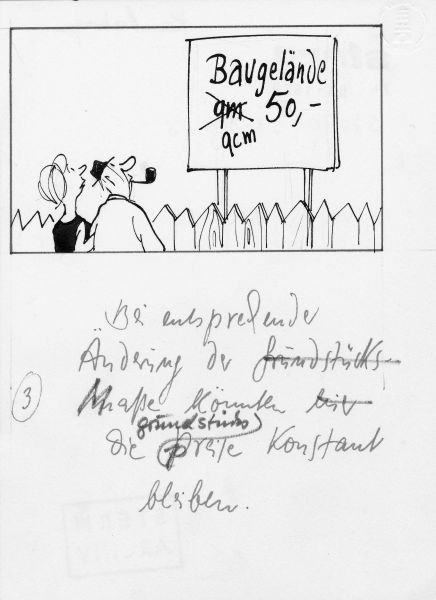 Baugelände
qm 50,-
qcm
"Bei entsprechender
Änderung der Grundstücks-
③ Maße könnten wir
grundstücks
die Preise konstant
bleiben.
STERN
ARCHIV